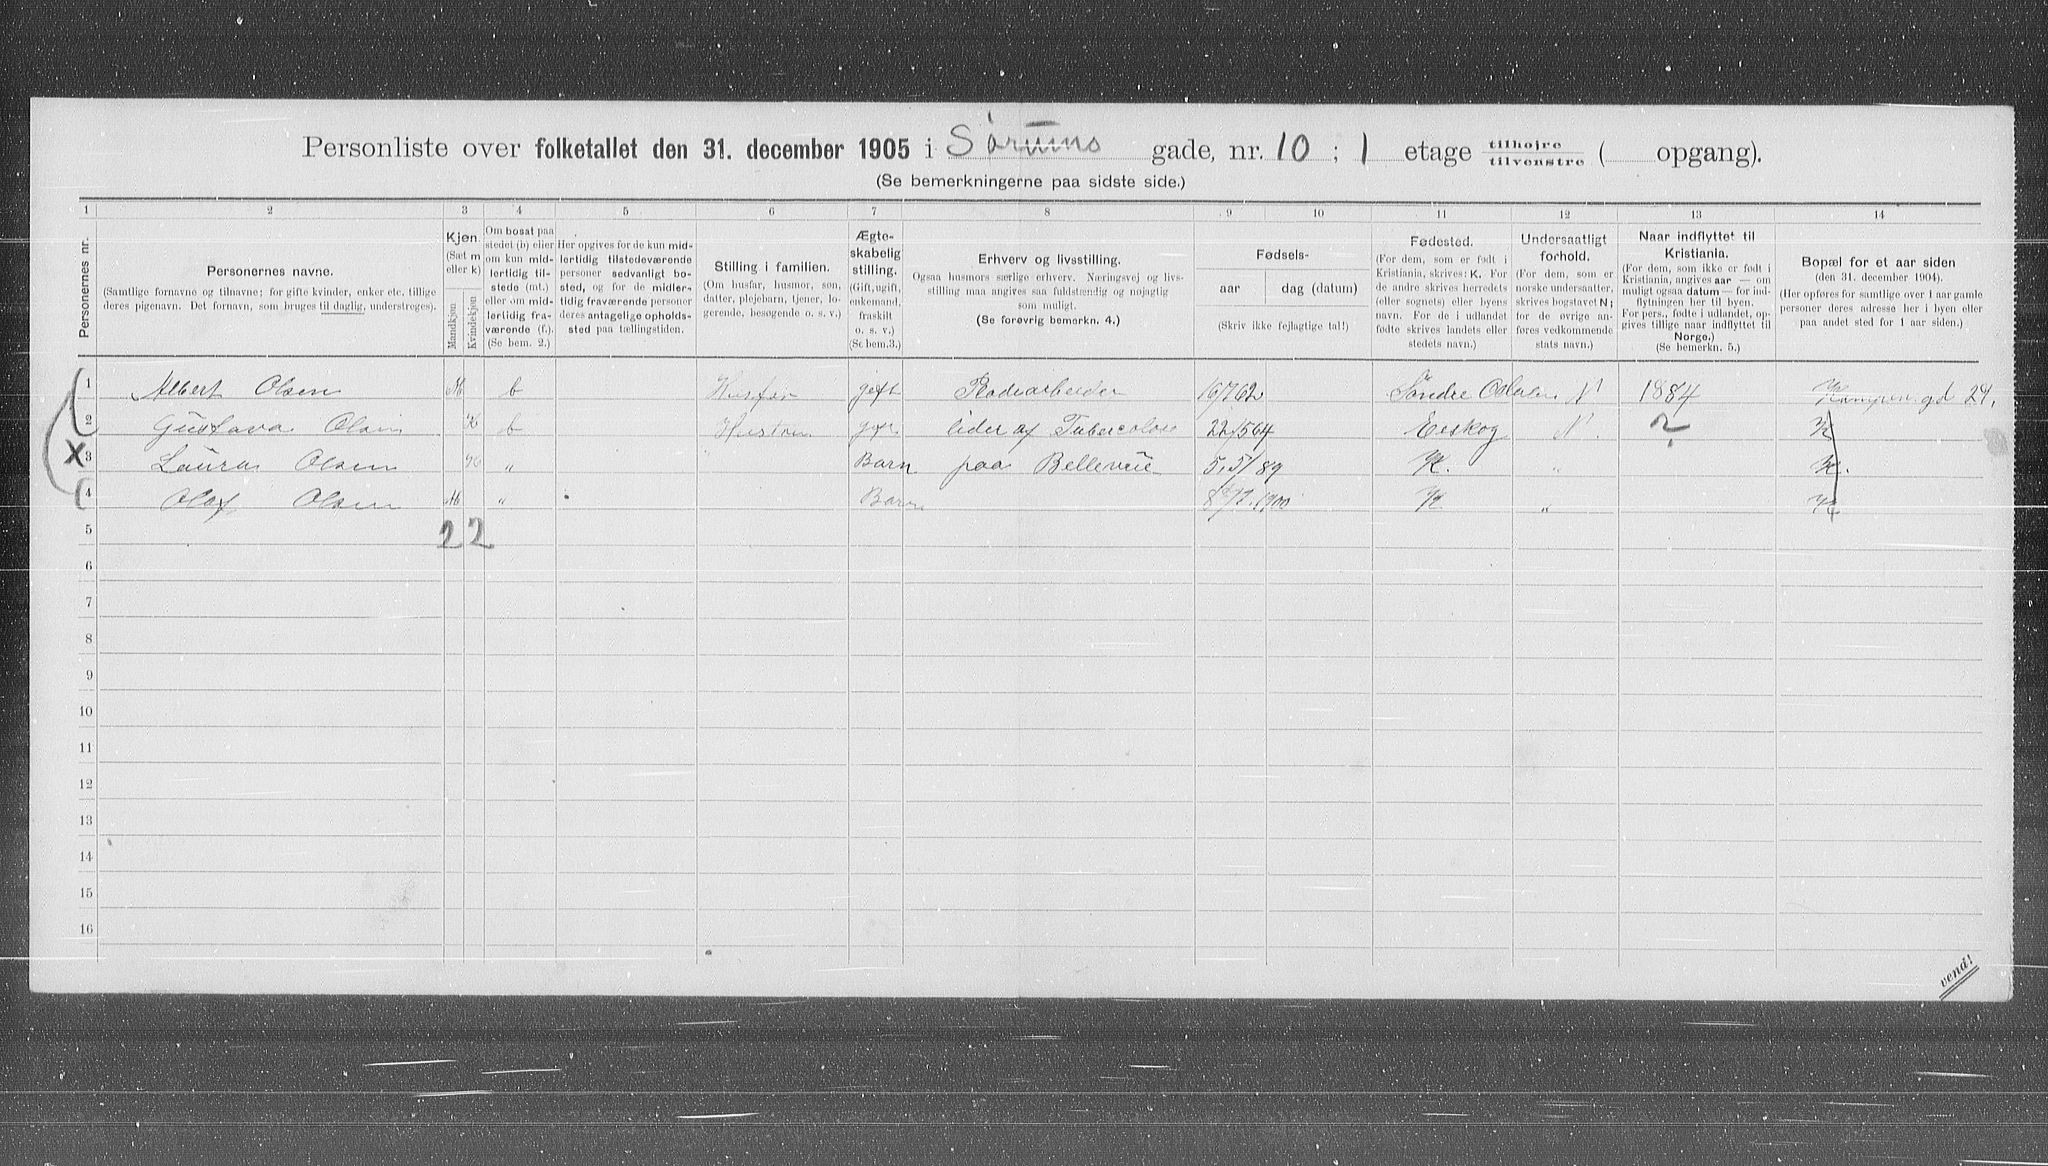 Personliste over folketallet den 31. december 1905 i Sørums gade, nr. 10 ; 1 etage tilhøjre tilvenstre ( opgang).
(Se bemerkningerne paa sidste side.)
1 2 3 4 5 6 7 8 9 10 11 12 13 14
Personernes nr.
Personernes navne.
(Samtlige fornavne og tilnavne; for gifte kvinder, enker etc. tillige deres pigenavn. Det fornavn, som bruges til daglig, understreges).
Kjøn.
(Sæt m eller k)
Mandkjøn
Kvindekjøn
Om bosat paa stedet (b) eller om kun midlertidig tilstede (mt.) eller om midlertidig fraværende (f.). (Se bem. 2.)
Her opgives for de kun midlertidig tilstedeværende personer sedvanligt bosted, og for de midlertidig fraværende personer deres antagelige opholdssted paa tællingstiden.
Stilling i familien.
(Om husfar, husmor, søn, datter, plejebarn, tjener, logerende, besøgende o. s. v.)
Ægteskabelig stilling.
(Gift, ugift, enkemand, fraskilt o. s. v.)
(Se bem.3.)
Erhverv og livsstilling.
Ogsaa husmors særlige erhverv. Næringsvej og livsstilling maa angives saa fuldstændig og nøjagtig som muligt.
(Se forøvrig bemerkn. 4.)
Fødsels-
aar
dag (datum)
(Skriv ikke fejlagtige tal!)
Fødested.
(For dem, som er født i Kristiania, skrives: K. For de andre skrives herredets (eller sognets) eller byens navn. For de i udlandet fødte skrives landets eller stedets navn.)
Undersaatligt forhold.
(For dem, som er norske undersaatter, skrives bogstavet N; for de øvrige anføres vedkommende stats navn.)
Naar indflyttet til Kristiania.
(For dem, som ikke er født i Kristiania, angives aar — om muligt ogsaa datum — for indflytningen her til byen. For pers., fødte i udlandet, opgives tillige naar indflyttet til Norge.)
(Se bemerkn. 5.)
Bopæl for et aar siden
(den 31. december 1904).
(Her opføres for samtlige over 1 aar gamle personer deres adresse her i byen eller paa andet sted for 1 aar siden.)
1 Albert Olsen M b Husfar gift 16/7 62 Søndre N 1884 Kampen. gd 24.
2 Gustava Olsen K b Hustru gift lider af Tubercolose 22/5 64 Eeskog N. ? K
X 3 Laura Olsen K „ Barn paa Belleveie 5/5/89 K. „ K.
4 Olaf Olsen M „ Barn 1900 K „ K
5 2 2
6
7
8
9
10
11
12
13
14
15
16
vend!